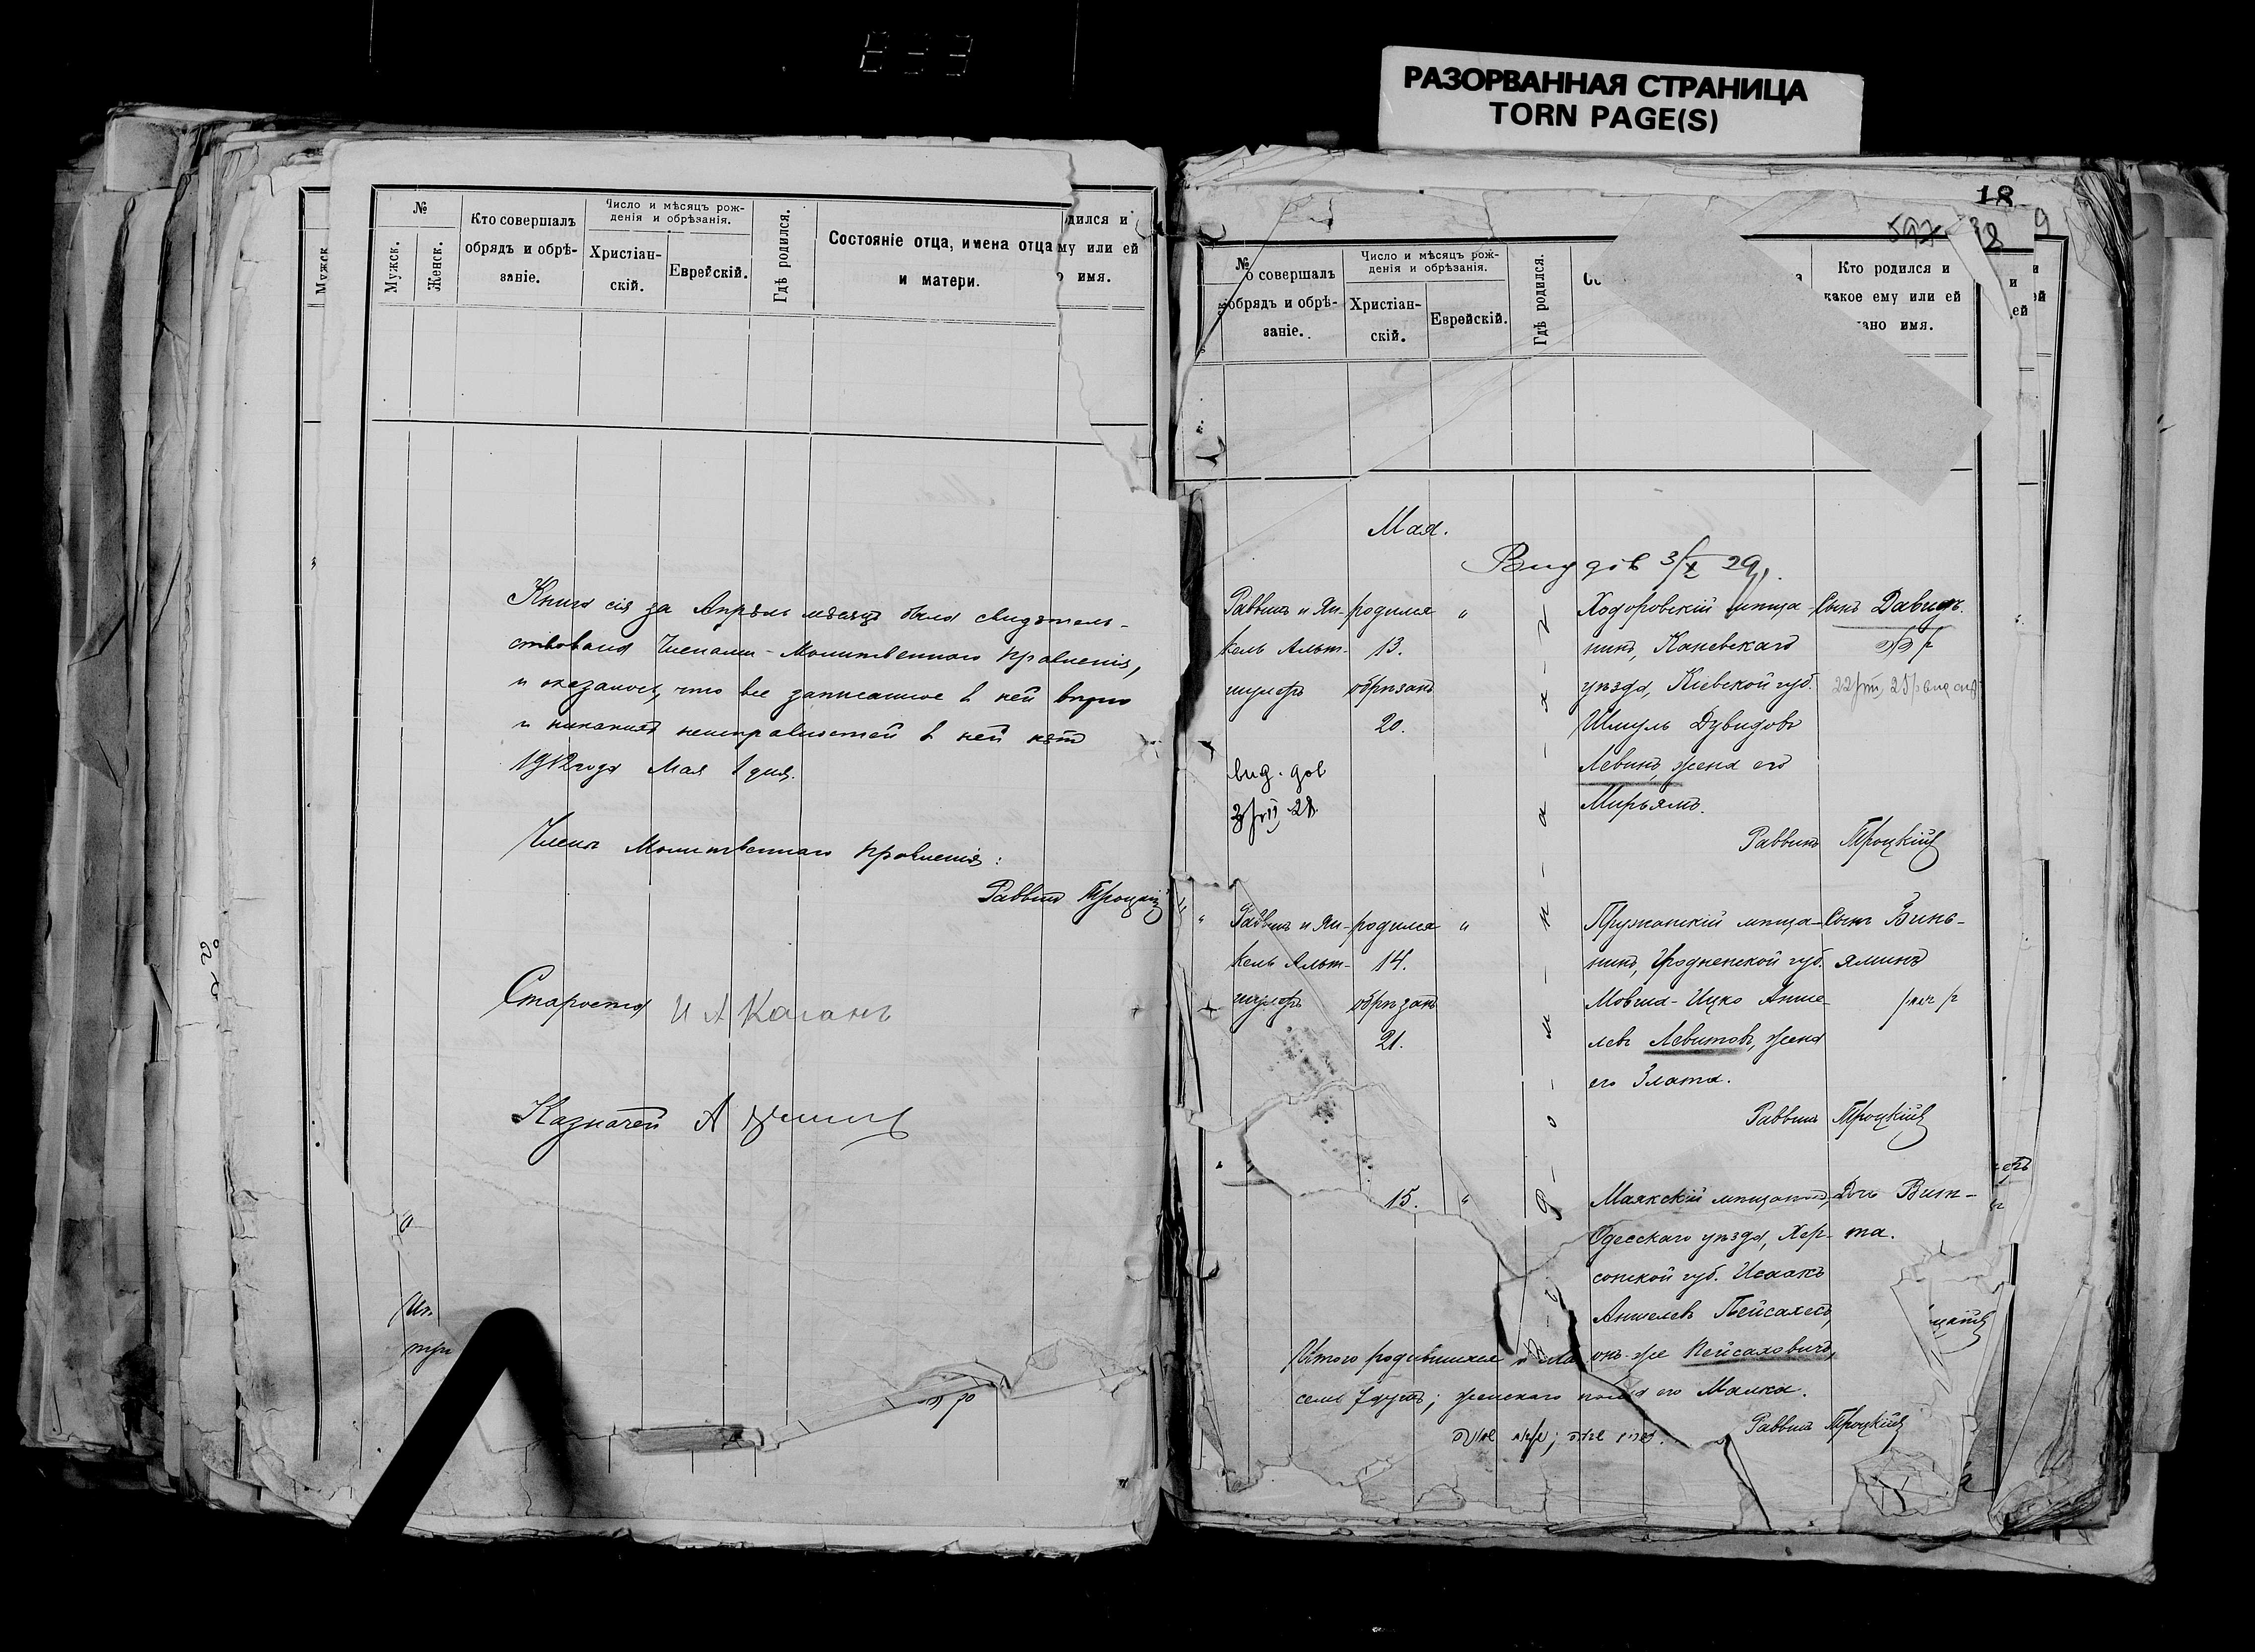 РАЗОРВАННАЯ СТРАНИЦА
TORN PAGE(S)
18
№
Мужск.
Женск.
Кто совершалъ
обрядъ и обрѣ-
заніе.
Число и мѣсяцъ рож-
денія и обрѣзанія.
Христіан-
скій.
Еврейскій.
Гдѣ родился.
Состояніе отца, имена отца
и матери.
дился и
му или ей
имя.
Книга сія за Апрѣль мѣсяцъ была свидѣтель-
ствована Членами Молитвеннаго правленія,
и оказалось, что все записанное в ней вѣрно
и никакихъ неисправностей в ней нѣтъ
1912 года Мая 1 дня.
Члены Молитвеннаго правленія:
Раввинъ Троцкій
Староста И А Каганъ
Казначей А
№
о совершалъ
обрядъ и обрѣ-
заніе.
Число и мѣсяцъ рож-
денія и обрѣзанія.
Христіан-
скій.
Еврейскій.
Гдѣ родился.
Кто родился и
какое ему или ей
ано имя.
Мая.
Вид дов 3/X 29
Раввинъ и Ян-
кель Альт-
шулеръ
родился
13.
обрѣзанъ
20.
"
Ходоровскій мѣща-
нинъ, Каневскаго
уѣзда, Кіевской губ.
Шмуль Дувидовъ
Левинъ, жена его
Мирьямъ.
Сынъ Давидъ.
вид. дов
Раввинъ Троцкій
"
Раввинъ и Ян-
кель Альт-
шулеръ
родился
14.
обрѣзанъ
21.
"
Пружанскій мѣща-
нинъ, Гродненской губ.
Мовша-Ицко Анше-
левъ Левитовъ, жена
его Злата.
Сынъ Винь-
яминъ
Раввинъ Троцкій
15.
"
Маякскій мѣщанинъ,
Одесскаго уѣзда, Хер-
сонской губ. Исаакъ
Аншелевъ Пейсахесъ,
онъ-же Пейсаховичъ,
его Малка.
Дочь Вит-
та.
Итого родившихся
семь 7 душъ; женскаго пола
Раввинъ Троцкій